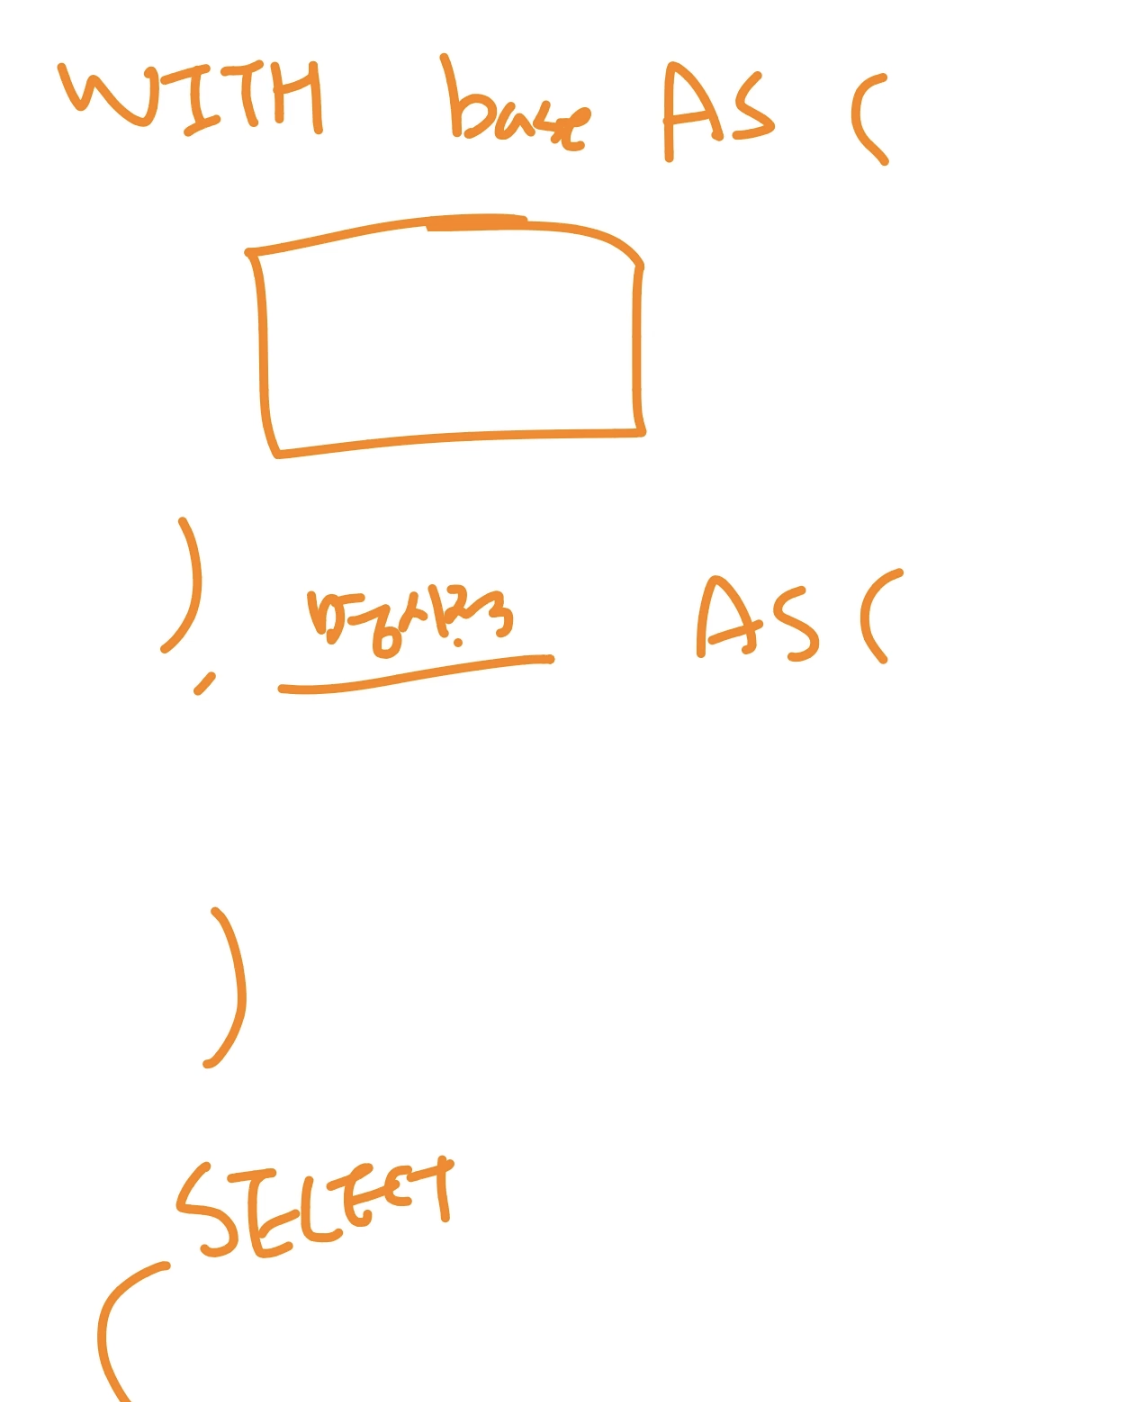 WITH base AS (
), AS (
)
SELECT
(